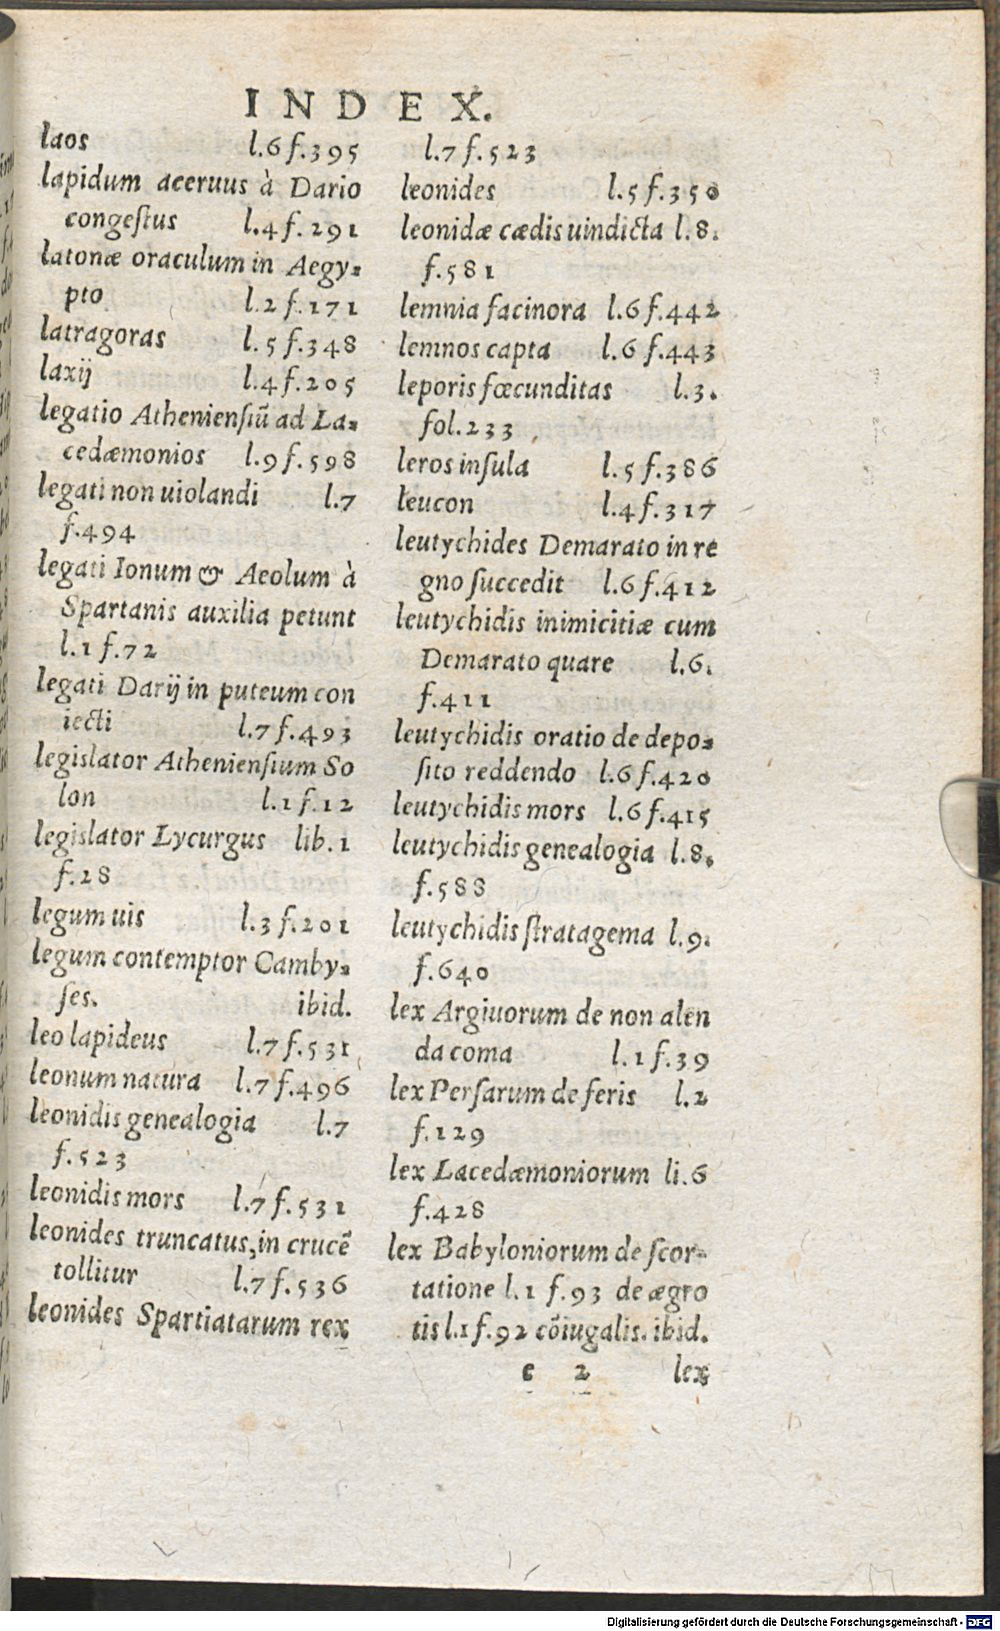 INDEX.
laos l.6 f.395
lapidum aceruus à Dario
congeſtus l.4 f.291
latonæ oraculum in Aegy⸗
pto l.2 f.171
latragoras l.5 f.348
laxij l.4 f.205
legatio Athenienſiũ ad La⸗
cedæmonios l.9 f.598
legati non uiolandi l.7
f.494
legati Ionum & Aeolum à
Spartanis auxilia petunt
l.1 f.72
legati Darij in puteum con
iecti l.7 f.493
legislator Athenienſium So
lon l.1 f.12
legislator Lycurgus lib.1
f.28
legum uis l.3 f.201
legum contemptor Camby⸗
ſes. ibid.
leo lapideus l.7 f.531
leonum natura l.7 f.496
leonidis genealogia l.7
f.523
leonidis mors l.7 f.531
leonides truncatus, in crucẽ
tollitur l.7 f.536
leonides Spartiatarum rex
l.7 f.523
leonides l.5 f.350
leonidæ cædis uindicta l.8.
f.581
lemnia facinora l.6 f.442
lemnos capta l.6 f.443
leporis fœcunditas l.3.
fol.233
leros inſula l.5 f.386
leucon l.4 f.317
leutychides Demarato in re
gno ſuccedit l.6 f.412
leutychidis inimicitiæ cum
Demarato quare l.6.
f.411
leutychidis oratio de depo⸗
ſito reddendo l.6 f.420
leutychidis mors l.6 f.415
leutychidis genealogia l.8.
f.588
leutychidis ſtratagema l.9.
f.640
lex Argiuorum de non alen
da coma l.1 f.39
lex Perſarum de feris l.2
f.129
lex Lacedæmoniorum li.6
f.428
lex Babyloniorum de ſcor-
tatione l.1 f.93 de ægro
tis l.1 f.92 cõiugalis. ibid.
e 2 lex
Digitalisierung gefördert durch die Deutsche Forschungsgemeinschaft - DFG